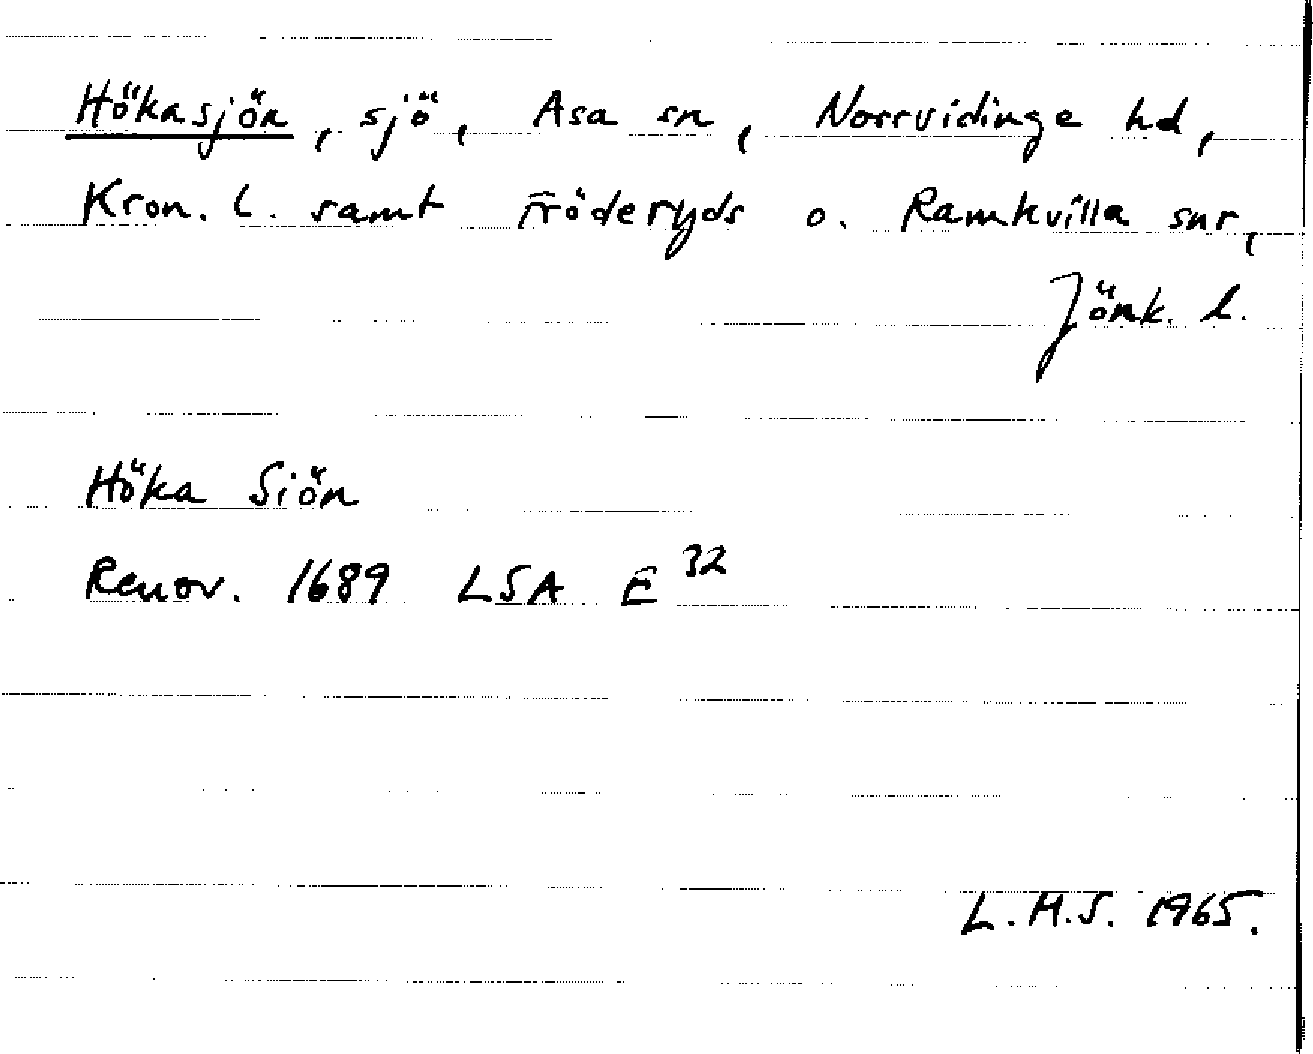 Hökasjön, sjö, Asa sn, Norrvidinge hd,
Kron. l. samt Fröderyds o. Ramkvilla snr,
Jönk. l.
Höka Siön
Renov. 1689 LSA E 32
L.H.S. 1965.